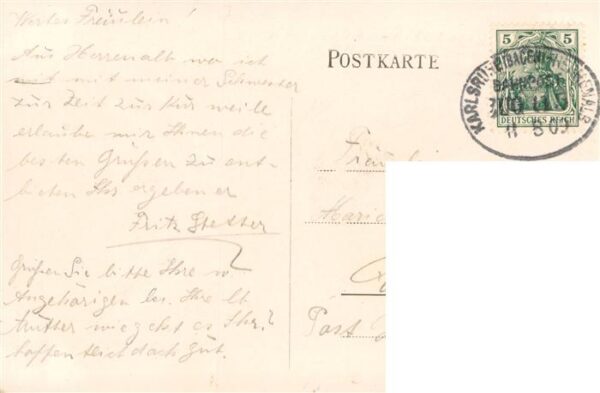 Wertes Fräulein!
Aus Herrenalb wo ich
mit mit meiner Schwester
zur Zeit zur Kur weile
erlaube mir Ihnen die
besten Grüßen zu ent-
bieten Ihr ergebener
Fritz Stetter
Grüßen Sie bitte Ihre w.
Angehörigen bes. Ihre lb
Mutter wie geht es Ihr?
hoffentlich doch gut.
POSTKARTE
5 5
DEUTSCHES REICH
KARLSRUHE
BAHNPOST
ZUG 11
11 8 09
Fräulein
Marie
Post